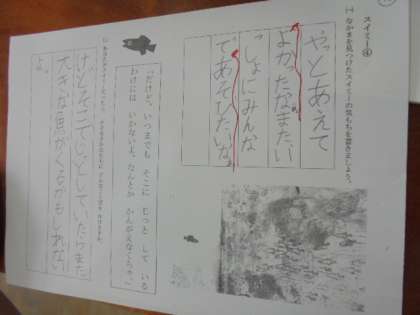 スイミー④
なかまを見つけたスイミーの気もちを書きましょう。
やっとあえて
よかったなまたい
っしょにみんな
であそびたいな。
「だけど、いつまでも そこに じっと して いる
わけには いかないよ。なんとか かんがえなくちゃ。」
あなたがスイミーだったら、
けどそこでじっとしていたらまた
大きな魚がくるかもしれない
よ。